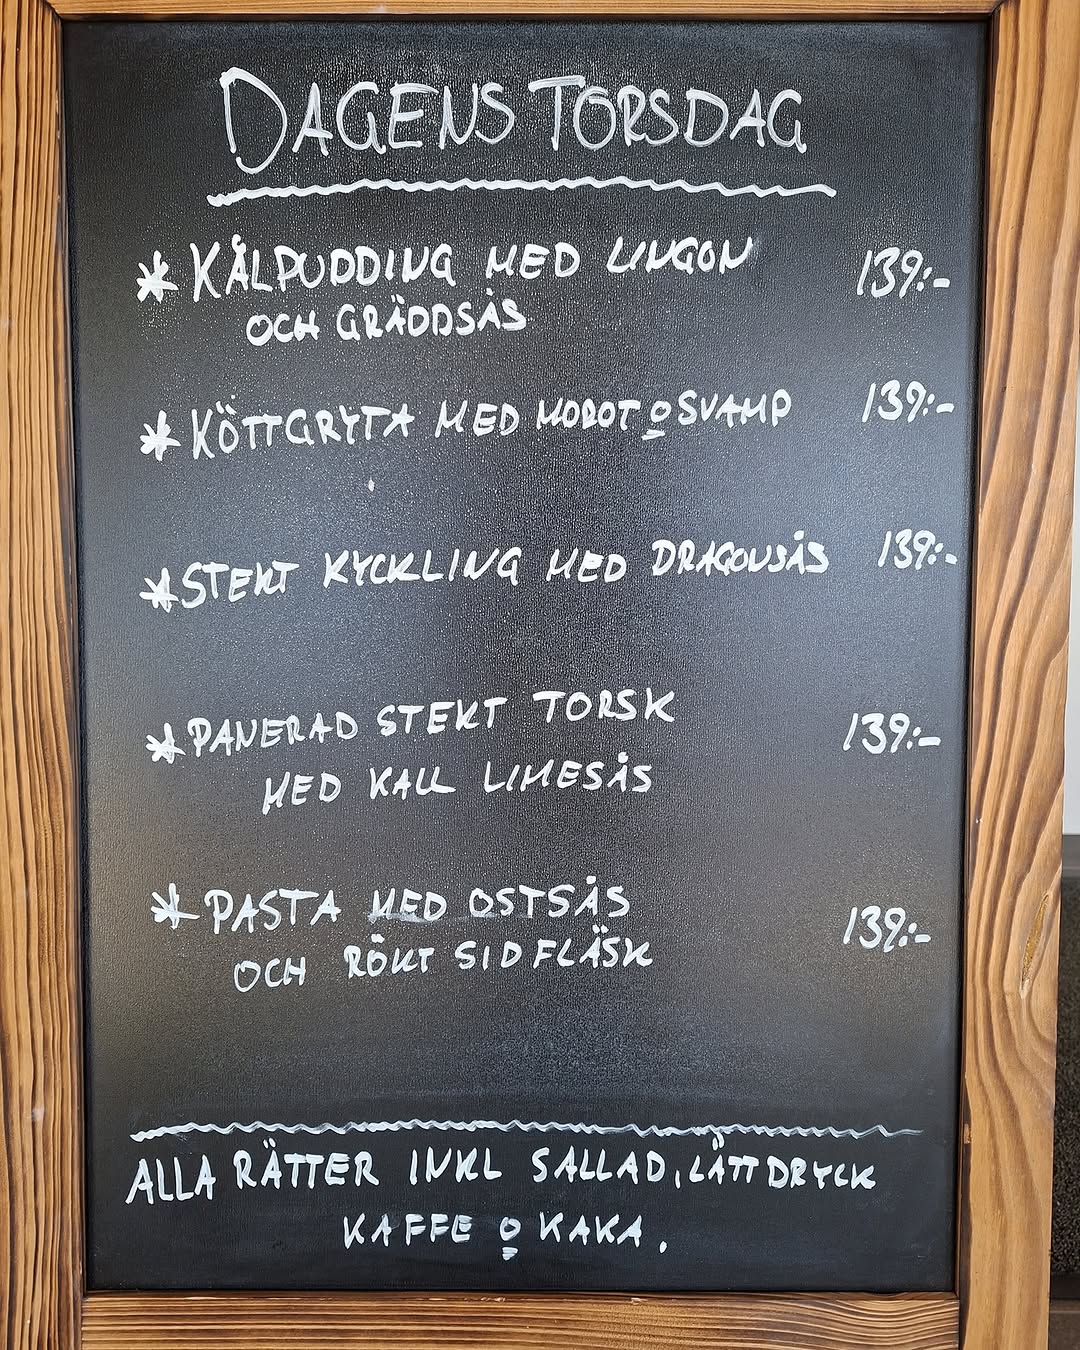 DAGENS TORSDAG
* KÅLPUDDING MED LINGON 139:-
OCH GRÄDDSÅS
* KÖTTGRYTA MED MOROT o SVAMP 139:-
* STEKT KYCKLING MED DRAGONSÅS 139:-
* PANERAD STEKT TORSK 139:-
MED KALL LIMESÅS
* PASTA MED OSTSÅS 139:-
OCH RÖKT SIDFLÄSK
ALLA RÄTTER INKL SALLAD, LÄTTDRYCK
KAFFE o KAKA.